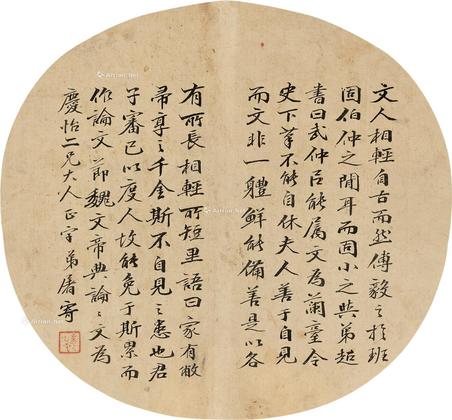 文人相輕自古而然傅毅之於班
固伯仲之間耳而固小之與弟超
書曰武仲㠯能屬文為蘭臺令
史下筆不能自休夫人善于自見
而文非一體鮮能備善是以各
有所長相輕所短里語曰家有敝
帚享之千金斯不自見之患也君
子審己以度人故能免于斯累而
作論文節魏文帝典論〻文為
慶怡二兄大人正字弟屠寄